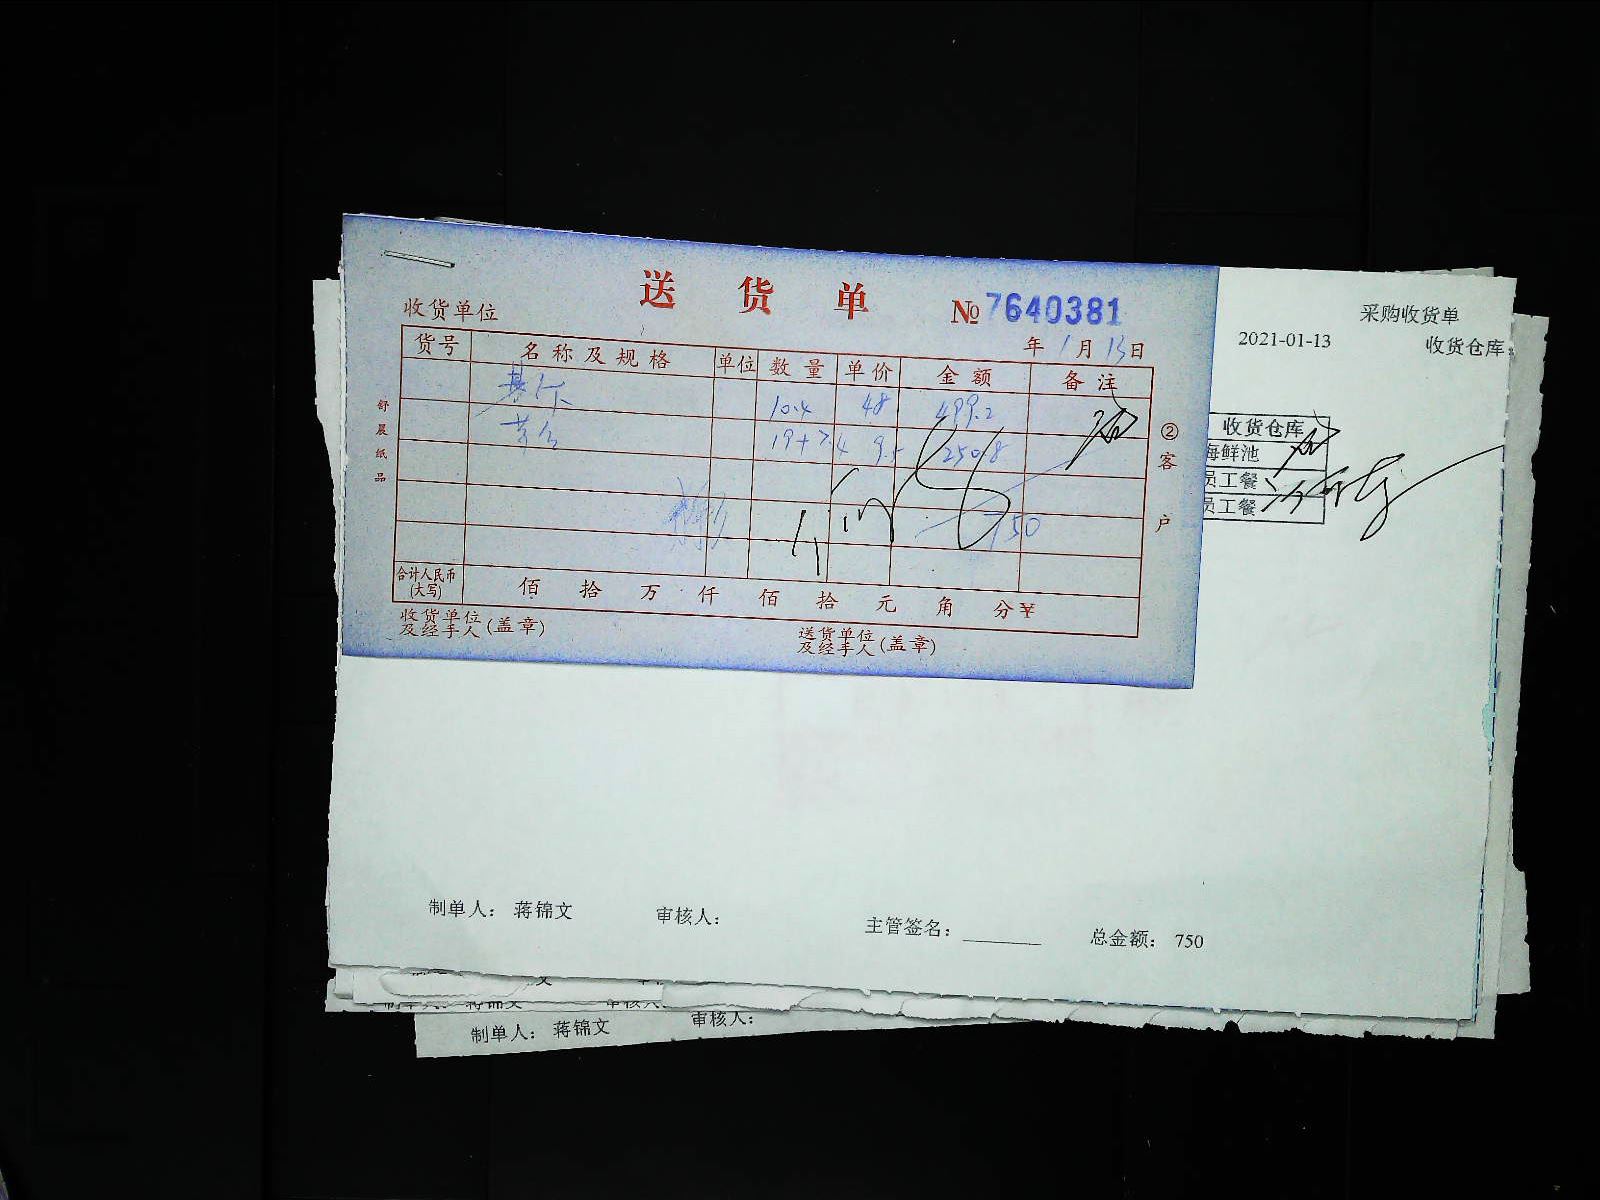 送货单 № 7640381
收货单位
年 1 月 13 日
货号 名称及规格 单位 数量 单价 金额 备注
10.4 48 499.2
19+7.4 9.5 250.8
750
合计人民币(大写) 佰 拾 万 仟 佰 拾 元 角 分 ¥
收货单位及经手人(盖章) 送货单位及经手人(盖章)
舒晨纸品
②客户
采购收货单
2021-01-13 收货仓库:
收货仓库
海鲜池
员工餐
员工餐
制单人: 蒋锦文 审核人: 主管签名: 总金额: 750
制单人: 蒋锦文 审核人:
制单人: 蒋锦文 审核人: